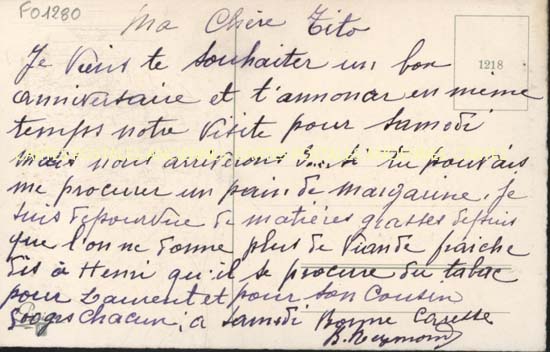 FO1280
Ma Chère Tito
1218
Je viens te souhaiter un bon
anniversaire et t'annoncer en même
temps notre visite pour samedi
mais nous arriverons si tu pouvais
me procurer un pain de margarine. Je
suis depourvue de matières grasses depuis
que l'on ne donne plus de viande fraiche
dis à Henri qu'il se procure du tabac
pour Laurent et pour son Cousin
500grs Chacun, a samedi Bonne Caresse
B. Reymond